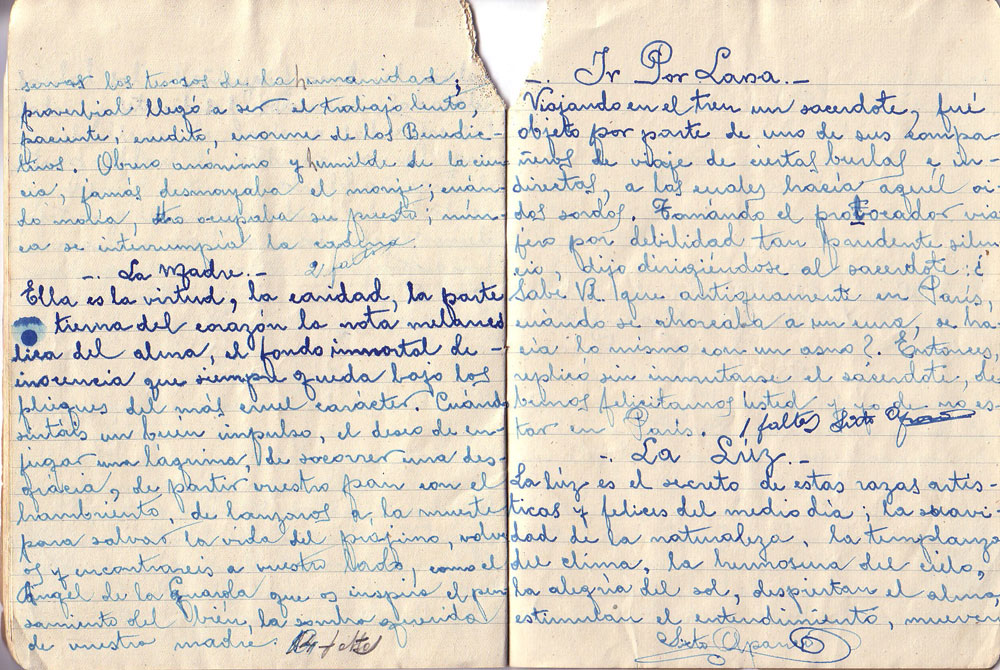 servar los tesosos de la humanidad;
proverbial llegó a ser el trabajo lento,
paciente, erudito, enorme de los Benedic-
tinos. Obrero anónimo y humilde de la cien
cia, jamás desmayaba el monje; cuán-
do moria, otro ocupaba su puesto; nún-
ca se interrumpía la cadena.
2 faltas
-. La Madre.-
Ella es la virtud, la caridad, la parte
tierna del corazón la nota melancó
lica del alma, el fondo inmortal de -
inocencia que siempre queda bajo los
pliegues del más cruel carácter. Cuándo
sintáis un buen impulso, el deseo de en-
jugar una lágrima, de socorrer una des-
grácia, de partir vuestro pan con el
hambriento, de lanzaros a la muerte
para salvar la vida del prójimo, volve
os y encontrareis a vuestro lado, como el
Angel de la Guarda que os inspira el pen
samiento del bién, la sombra querida
de vuestra madre. 4 faltas
-. Ir Por Lana.-
Viajando en el tren un sacerdote, fué
objeto por parte de uno de sus compa-
ñeros de viaje de ciertas burlas e in-
directas, a las cuales hacía aquél oi-
dos sordos. Tomándo el provocador via
jero por debilidad tan pundente silen
cio, dijo dirigiéndose al sacerdote: ¿
Sabe Vd. que antiguamente en París,
cuándo se ahorcaba a un cura, se há-
cía lo mismo con un asno?. Entonces,
replicó sin inmutarse el sácerdote, de
bemos felicitarnos usted y yo de no es
tar en París. 1 faltas Sixto
-. La Lúz.-
La lúz es el secreto de estas razas artís-
ticas y felices del medio día; la suavi-
dad de la naturaleza, la templanza
del clima, la hermosura del cielo,
la alegría del sol, despiertan el alma,
estimulan el entendimiento, mueven
Sixto Aparici